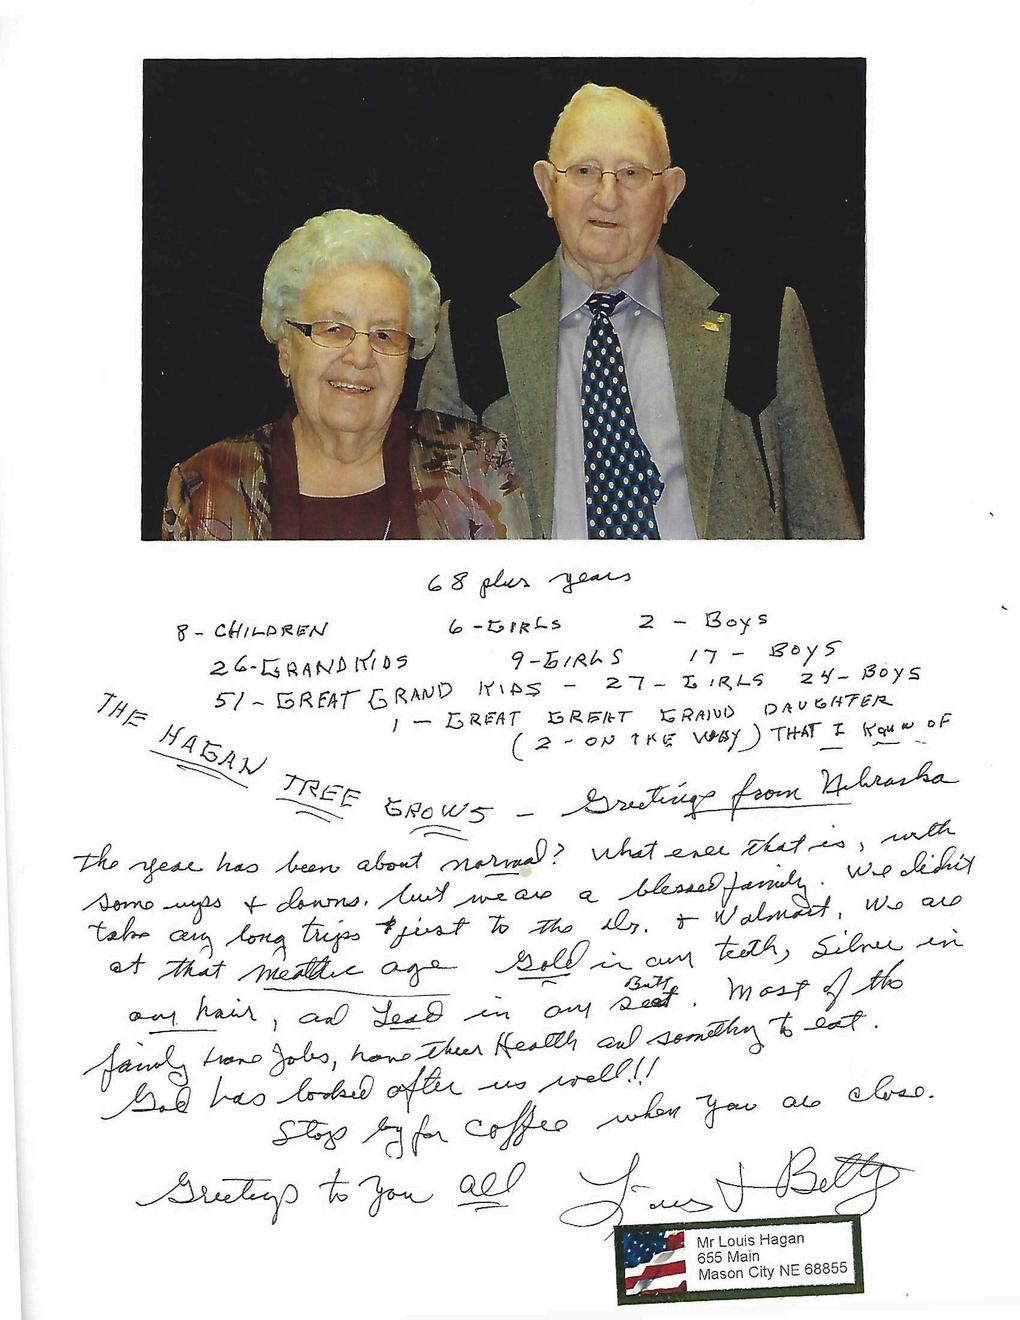 68 plus years
8 - CHILDREN 6 - GIRLS 2 - Boys
26 - GRANDKIDS 9 - GIRLS 17 - BOYS
51 - GREAT GRAND KIDS - 27 - GIRLS 24 - BOYS
1 - GREAT GREAT GRAND DAUGHTER
(2 - ON THE WAY) THAT I Know OF
THE HAGAN TREE GROWS - Greetings from Nebraska
the year has been about normal? What ever that is, with
some ups & downs. but we are a blessed family. We didn't
take any long trips just to the Dr. & Walmart. We are
at that meatlic age Gold in our teeth, Silver in
our hair, and Lead in our Butt. Most of the
family have Jobs, have their Health and something to eat.
God has looked after us well!!
Stop by for coffee when you are close.
Greetings to you all Louis & Betty
Mr Louis Hagan
655 Main
Mason City NE 68855